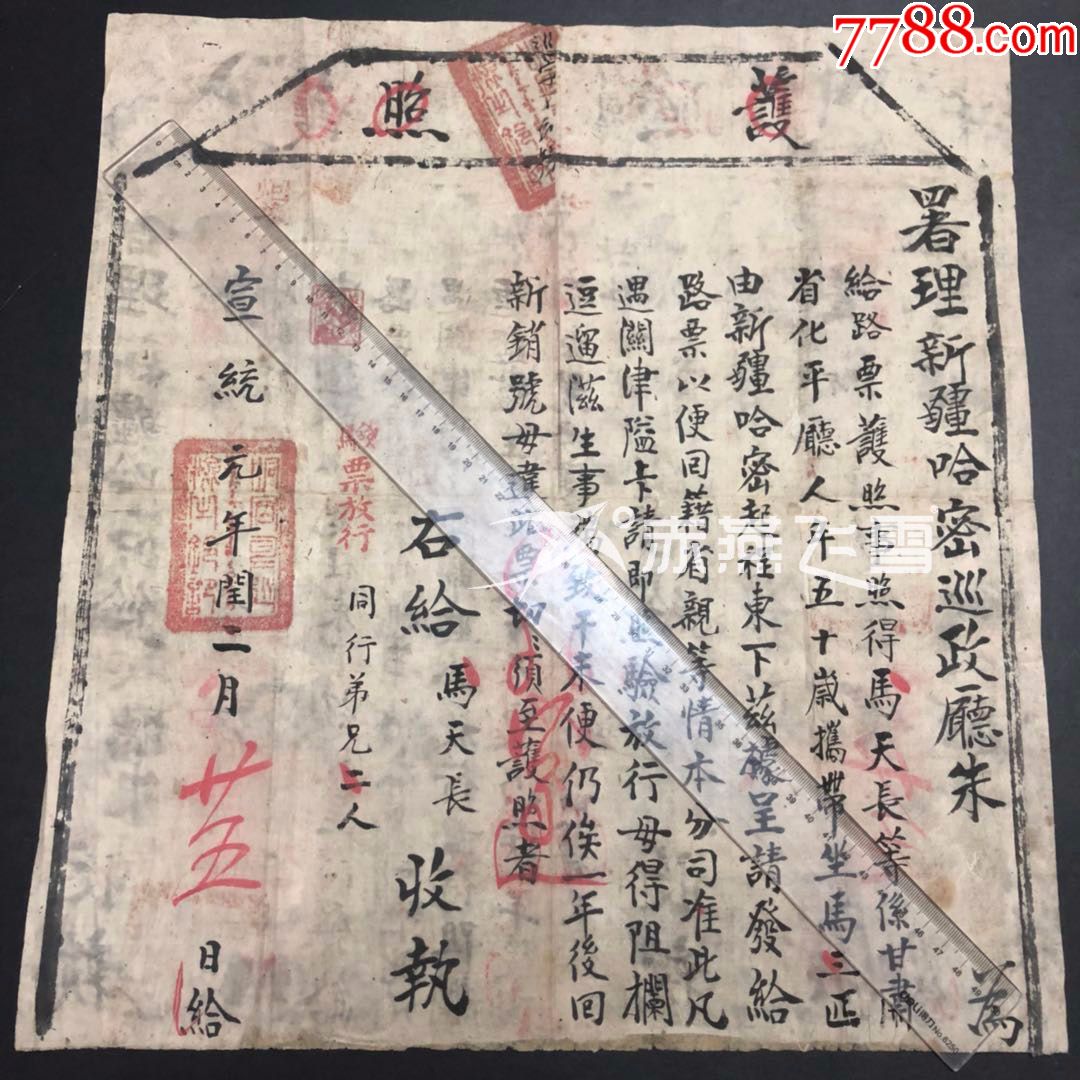 7788.com
護照
署理新疆哈密巡政廳朱 為
給路票護照事照得馬天長等係甘肅
省化平廳人年五十歲攜帶坐馬三匹
由新疆哈密起程東下茲據呈請發給
路票以便回籍省親等情本分司准此凡
遇關津隘卡請即照驗放行毋得阻攔
逗遛滋生事 致干未便仍俟一年後回
新銷號毋違此票切切須至護照者
右給馬天長收執
同行弟兄二人
驗票放行
宣統元年閏二月廿五日給
赤燕飞雪
No.6250